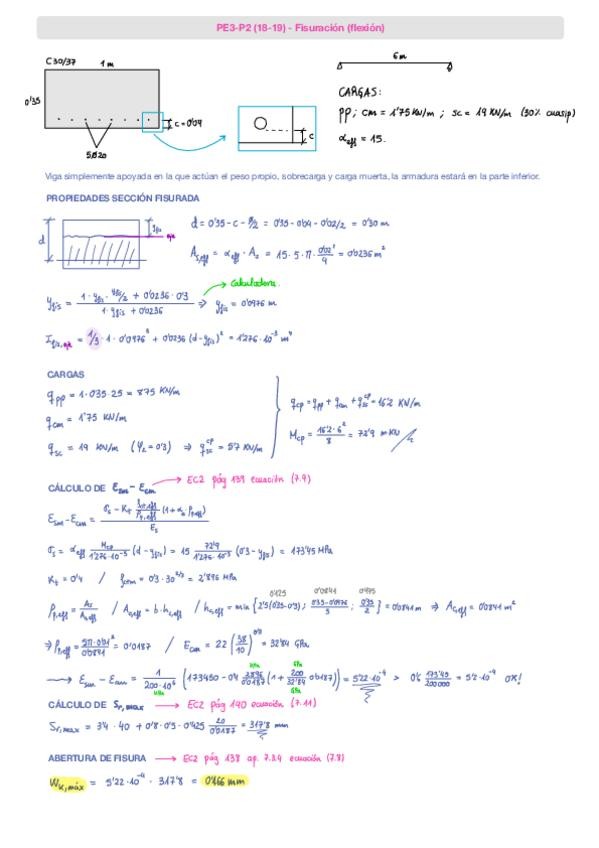 PE3-P2 (18-19) - Fisuración (flexión)
C30/37 1 m
6 m
0'35
c = 0'04
5∅20
c
CARGAS:
PP; CM = 1'75 KN/m ; SC = 19 KN/m (30% cuasip)
α_eff = 15.
Viga simplemente apoyada en la que actúan el peso propio, sobrecarga y carga muerta, la armadura estará en la parte inferior.
PROPIEDADES SECCIÓN FISURADA
d
y_fis
d = 0'35 - c - ∅/2 = 0'35 - 0'04 - 0'02/2 = 0'30 m
A_s,eff = α_eff · A_s = 15 · 5 · π · 0'02²/4 = 0'0236 m²
Calculadora.
y_fis = (1 · y_fis · y_fis/2 + 0'0236 · 0'3)/(1 · y_fis + 0'0236) ⇒ y_fis = 0'0976 m
= 1/3 · 1 · 0'0976³ + 0'0236 (d - y_fis)² = 1'276 · 10⁻³ m⁴
CARGAS
q_pp = 1 · 0'35 · 25 = 8'75 KN/m
q_cm = 1'75 KN/m
q_sc = 19 KN/m (Ψ₂ = 0'3) ⇒ q_sc^cp = 5'7 KN/m
q_cp = q_pp + q_cm + q_sc^cp = 16'2 KN/m
M_cp = 16'2 · 6²/8 = 72'9 mKN
CÁLCULO DE ε_sm - ε_cm → EC2 pág 139 ecuación (7.9)
ε_sm - ε_cm = (σ_s - K_t f_ct,eff/ρ_p,eff (1 + α_e ρ_p,eff))/E_s
σ_s = α_eff M_cp/1'276·10⁻³ (d - y_fis) = 15 72'9/1'276·10⁻³ (0'3 - y_fis) = 173'45 MPa
K_t = 0'4 / f_ctm = 0'3 · 30^2/3 = 2'896 MPa
0'125 0'0841 0'175
ρ_p,eff = A_s/A_c,eff / A_c,eff = b · h_c,eff / h_c,eff = min {2'5(0'35-0'3); (0'35-0'0976)/3; 0'35/2} = 0'0841 m ⇒ A_c,eff = 0'0841 m²
⇒ ρ_p,eff = 5π·0'01²/0'0841 = 0'0187 / E_cm = 22 (38/10)^0'3 = 32'84 GPa
→ ε_sm - ε_cm = 1/(200·10⁶) (173450 - 0'4 2896/0'0187 (1 + 200/32'84 0'0187)) = 5'22·10⁻⁴ > 0'6 173'45/200000 = 5'2·10⁻⁴ OK!
CÁLCULO DE S_r,máx → EC2 pág 140 ecuación (7.11)
S_r,máx = 3'4 · 40 + 0'8 · 0'5 · 0'425 20/0'0187 = 317'8 mm
ABERTURA DE FISURA → EC2 pág 138 ap. 7.3.4 ecuación (7.8)
W_k,máx = 5'22 · 10⁻⁴ · 317'8 = 0'166 mm